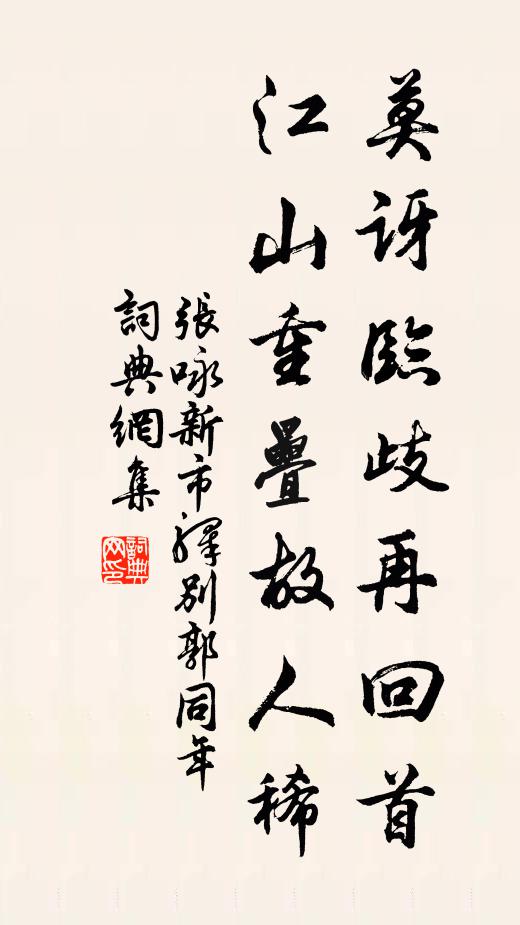 莫訝臨歧再回首
江山重疊故人稀
張咏新市驛別郭同年
詞典網集
詞典网印